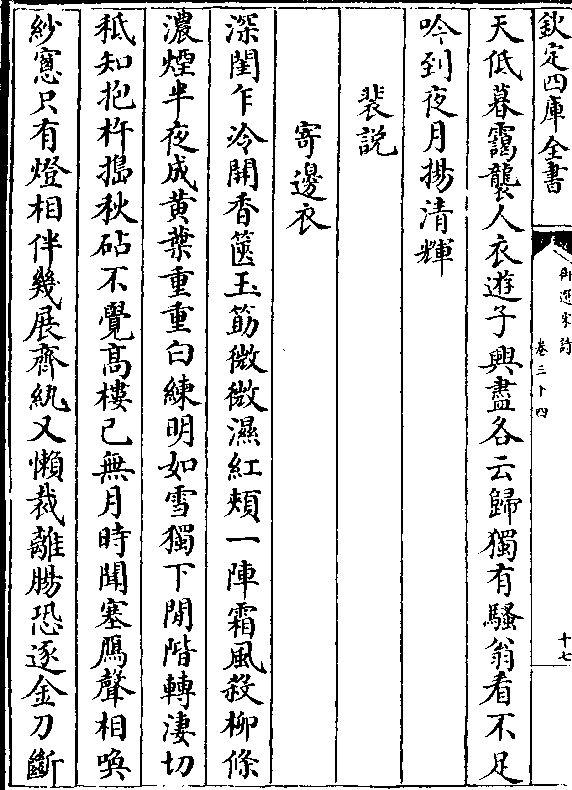 欽定四庫全書
御選宋詩
卷三十四
十七
天低暮靄襲人衣遊子興盡各云歸獨有騷翁看不足
吟到夜月揚清輝
裴説
寄邊衣
深閨乍冷開香篋玉筯微微濕紅頰一陣霜風殺柳條
濃煙半夜成黄葉重重白練明如雪獨下閒階轉淒切
秪知抱杵搗秋砧不覺髙樓已無月時聞塞鴈聲相喚
紗窻只有燈相伴幾展齊紈又懶裁離腸恐逐金刀斷